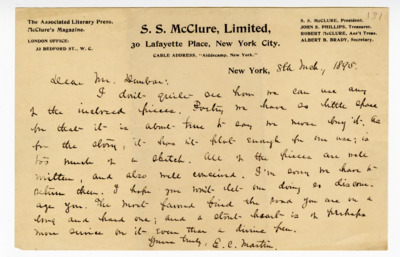 The Associated Literary Press.
McClure's Magazine.
LONDON OFFICE:
33 BEDFORD ST., W. C.
S. S. McClure, Limited,
30 Lafayette Place, New York City.
CABLE ADDRESS, "Aiddecamp, New York."
S. S. McCLURE, President.
JOHN S. PHILLIPS, Treasurer.
ROBERT McCLURE, Ass't Treas.
ALBERT B. BRADY, Secretary.
131
New York, 8th Mch, 1895
Dear Mr. Dunbar:
I don't quite see how we can use any
of the inclosed pieces. Poetry we have so little space
for that it is about true to say we never buy it. As
for the story, it has it plot enough for our use; is
too much of a sketch. All of the pieces are well
written, and also well conceived. I'm sorry we have to
return them. I hope you won't let our doing so discour-
age you. The most favored find the road you are on a
long and hard one; and a stout heart is of perhaps
more service on it even than a divine pen.
Yours truly, E. C. Martin